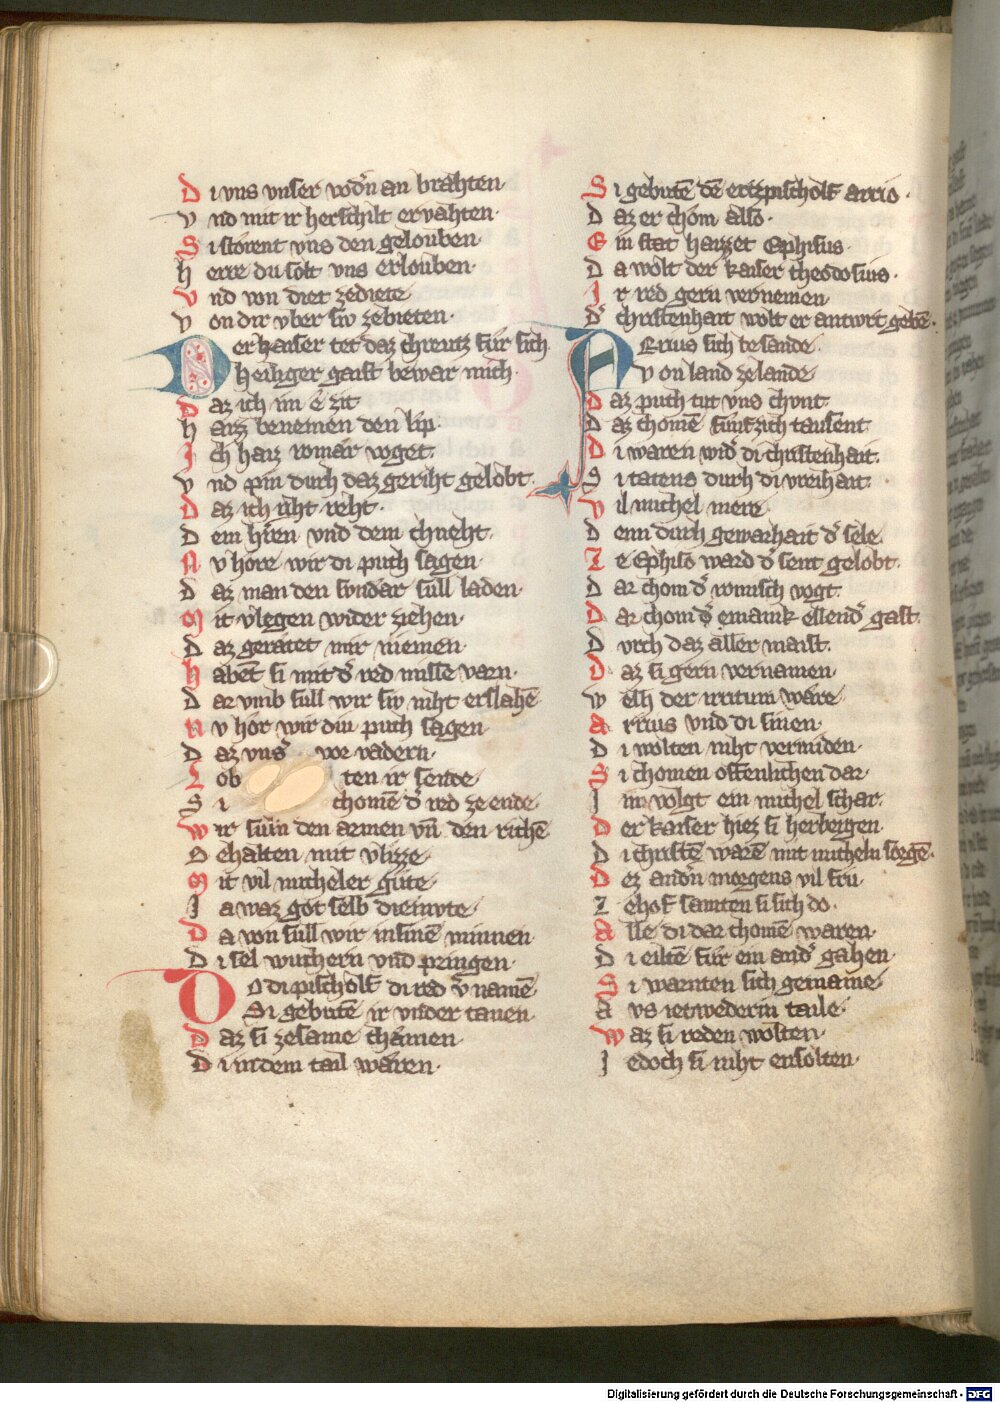 Di vns vnser vodn̄ an brahten
Vnd mit ir herschilt ervahten·
Si storent vns den gelouben·
herre du solt vns erlouben·
Vnd von diet zediete
Von dir vber siv zebieten·
Der kaiser tet daz chreutz fur sich
heiliger gaist bewar mich·
Daz ich im e zit
harz benemen den lip·
Ich haiz romær voget·
Vnd pin durh daz geriht gelobt·
Daz ich riht reht·
Dem hͤren vnd dem chneht·
Nv hore wir di puch sagen·
Daz man den sundar sull laden·
Mit vlegen wider ziehen·
Daz geratet mir niemen·
habent̄ si mit d̾ red misse varn·
Dar vmb sull wir siv niht erslahē
Nv hor wir div puch sagen
Daz vns̾ vor vadern·
Lob ten ir sende
Si chomē d̾ red ze ende·
Wir suln den armen vn̄ den richē
Behalten mit vlizze
Mit vil micheler gute
Ia waz got selb diemvte·
Da von sull wir in sinē minnen·
Di sel wuchern vnd pringen·
Do di pischolf di red v̾namē
Si gebutē ir vnder tanen·
Daz si zesame chamen·
Di in dem tail waren·
Si gebutē dē ertzpischolf arrio·
Daz er chom also·
Ein stat haizzet Ephisus·
Da wolt der kaiser theodosius·
Ir red gern vernemen·
D̾ christenhait wolt er antwrt gebē·
ARrius sich besande·
Von land zelande·
Daz puch tut vns chunt·
Daz chomē funfzich tausent·
Di waren wid̾ di christenhait·
Si tatens durh di vreihait·
Vil michel mere
Denn durh gewarhait d̾ sele·
Ze Ephiso ward d̾ sent gelobt·
Dar chom d̾ romisch vogt·
Dar chom d̾ emaink ellend̾ gast·
Durch daz aller maist·
Daz si gern vernamen·
Welh der irritum ware
Arrius vnd di sinen·
Di wolten niht vermiden·
Si chomen offenlichen dar·
Im volgt ein michel schar·
Der kaiser hiez si herbergen·
Di christē warē mit micheln sorgē·
Dez andn̄ morgens vil fru·
Ze hof samten si sich do·
Alle di dar chomē waren·
Di eiltē fur ein and̾ gahen·
Si warnten sich gemaine
Avs ietwederm taile·
Waz si reden wolten·
Iedoch si niht ensolten·
Digitalisierung gefördert durch die Deutsche Forschungsgemeinschaft - DFG